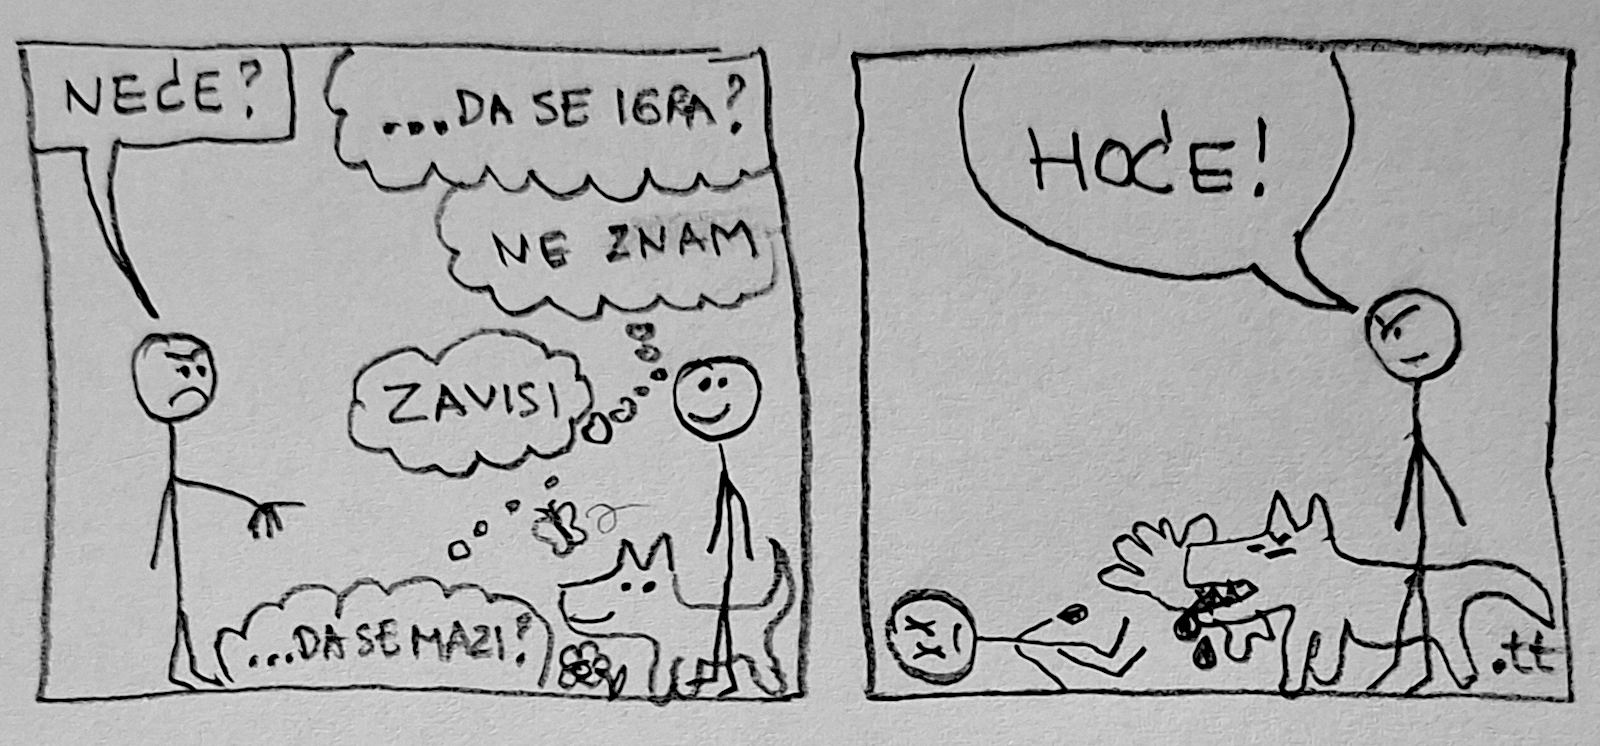 NEĆE?
...DA SE IGRA?
NE ZNAM
ZAVISI
...DA SE MAZI?
HOĆE!
.tt